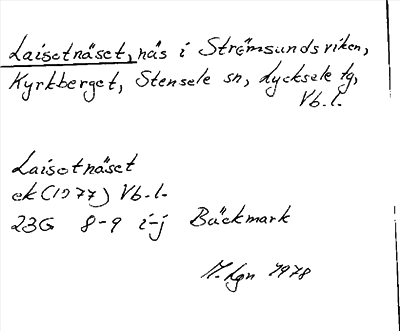 Laisotnäset, näs i Strömsundsviken,
Kyrkberget, Stensele sn, Lycksele tg,
Vb.l.
Laisotnäset
ek (1977) Vb.l.
23G 8-9 i-j Bäckmark
1978